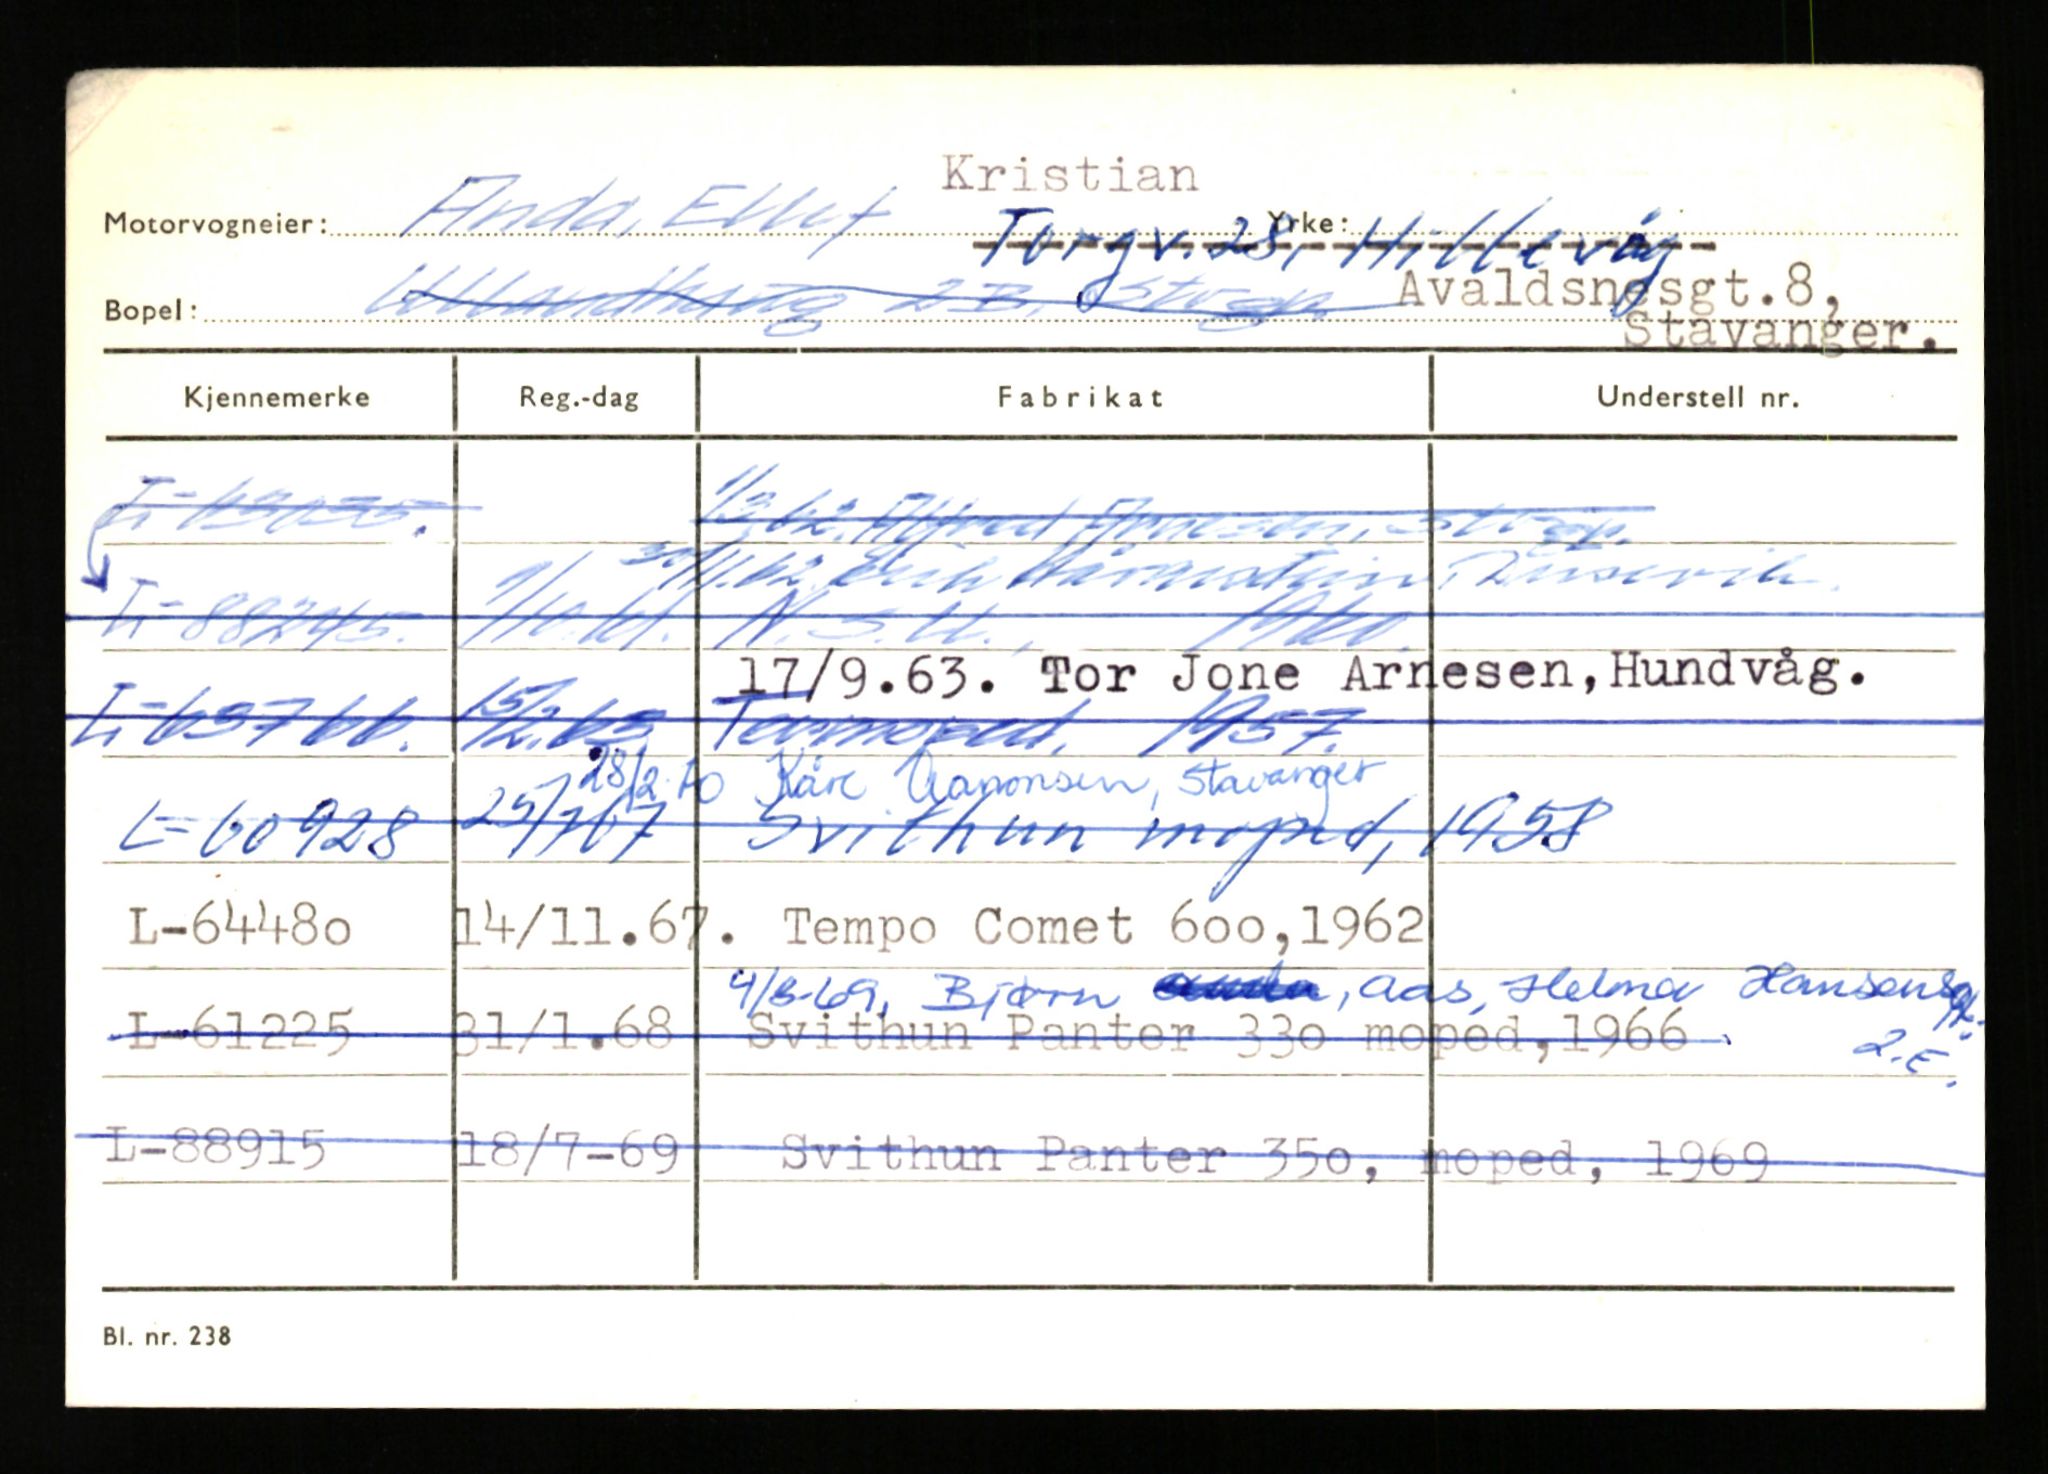 Kristian
Motorvogneier: Anda, Ellef Yrke:
Torgv. 28, Hillevåg
Bopel: Ullandhaug 2B, Stvgr. Avaldsnesgt.8,
Stavanger.
Kjennemerke Reg.-dag Fabrikat Understell nr.
1/3.62. Alfred Arnesen, Stvgr.
30/11.62. Erik
L-88245. 1/10.61. N.S.U., 1960.
17/9.63. Tor Jone Arnesen,Hundvåg.
L-65766. 15/2.63 Termoped. 1957.
28/2.70 Kåre Aanonsen, Stavanger
L-60928 25/767 Svithun moped, 1958
L-64480 14/11.67. Tempo Comet 600,1962
4/8-69, Bjørn , Aas, Helmer Hansensgt.
2.E.
L-61225 31/1.68 Svithun Panter 330 moped,1966
L-88915 18/7-69 Svithun Panter 350, moped, 1969
Bl. nr. 238